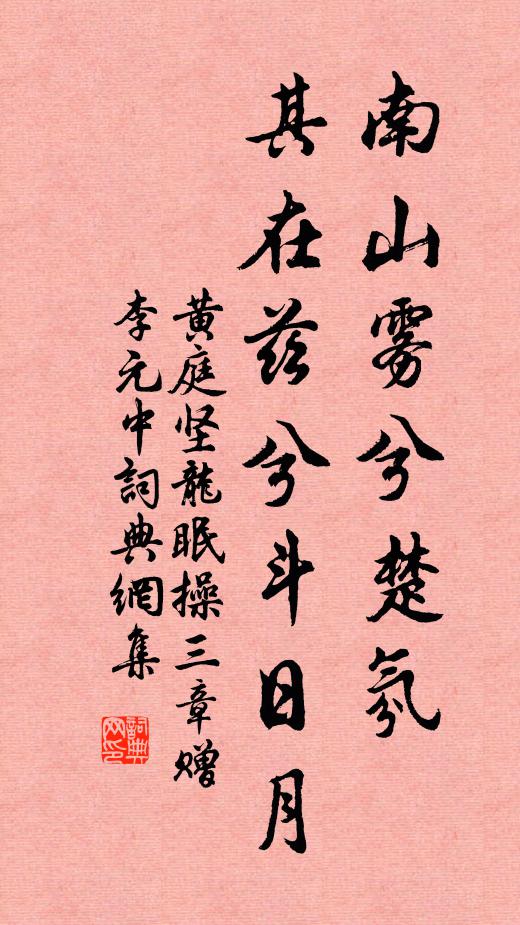 南山雾兮楚氛
其在兹兮斗日月
黄庭坚龍眠操三章赠
李元中詞典網集
詞典网印